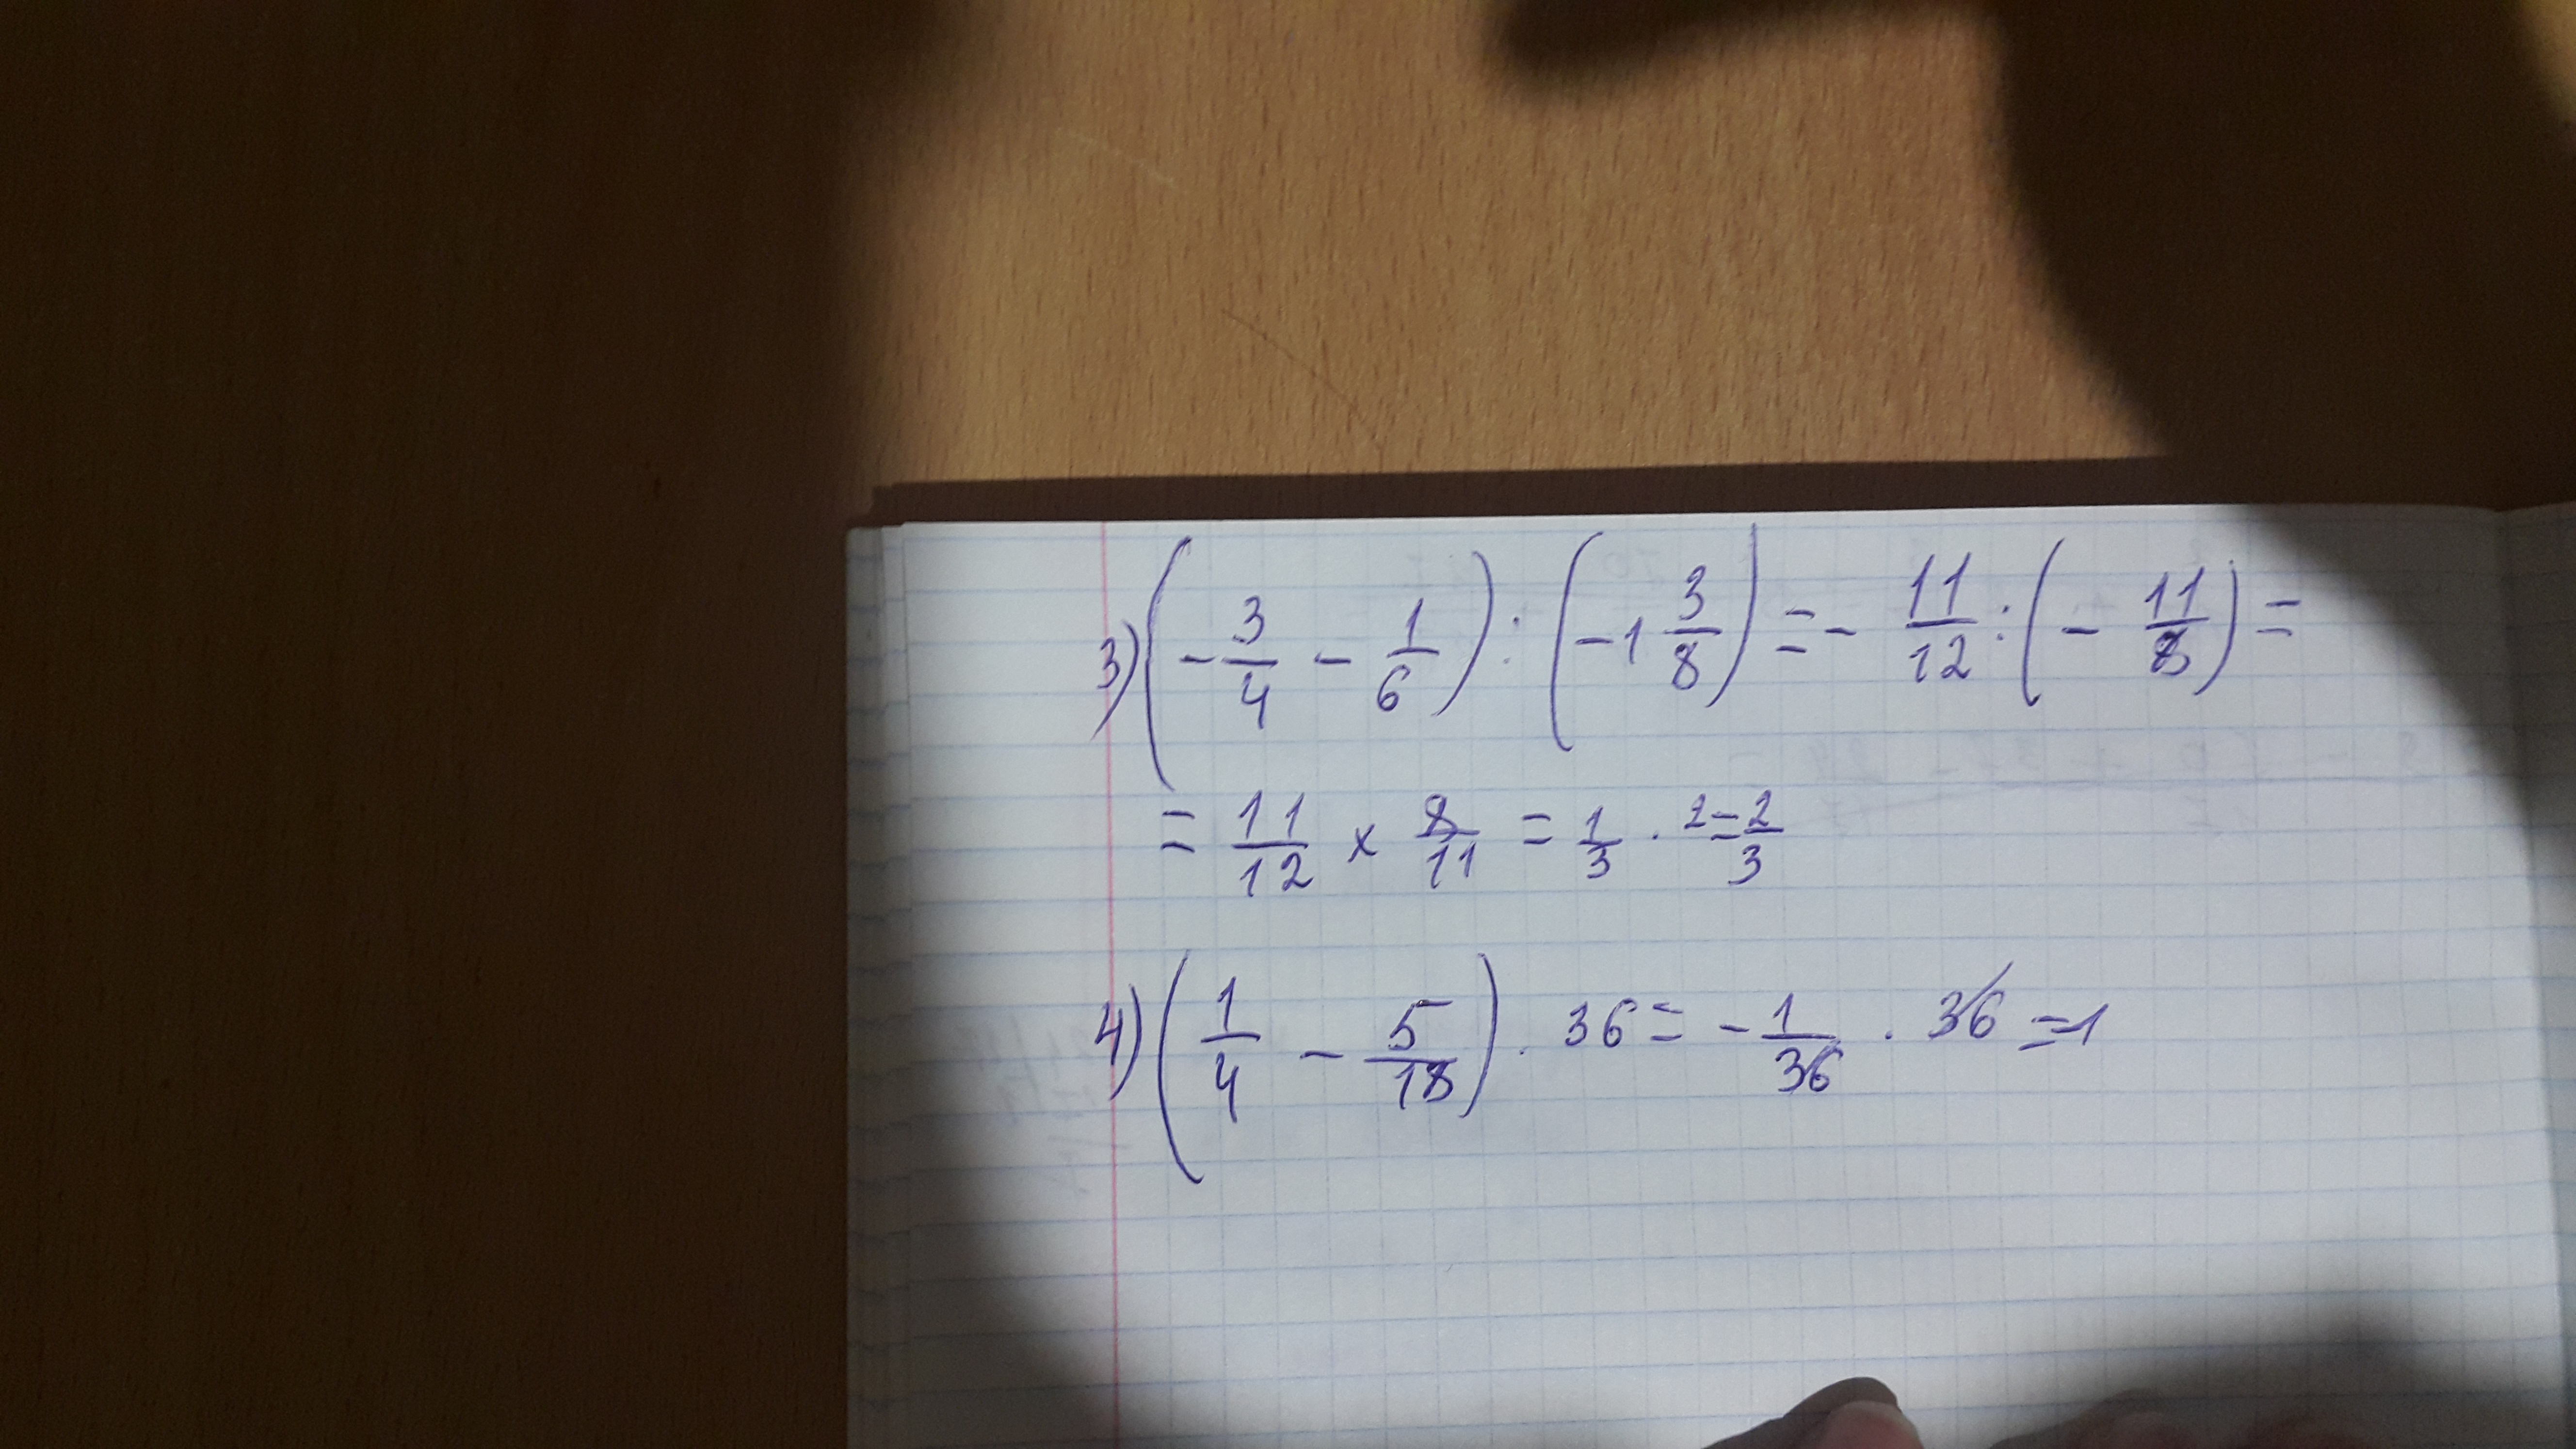 3) (-3/4 - 1/6) : (-1 3/8) = - 11/12 : (- 11/8) =
= 11/12 x 8/11 = 1/3 · 2 = 2/3
4) (1/4 - 5/18) · 36 = - 1/36 · 36 = -1